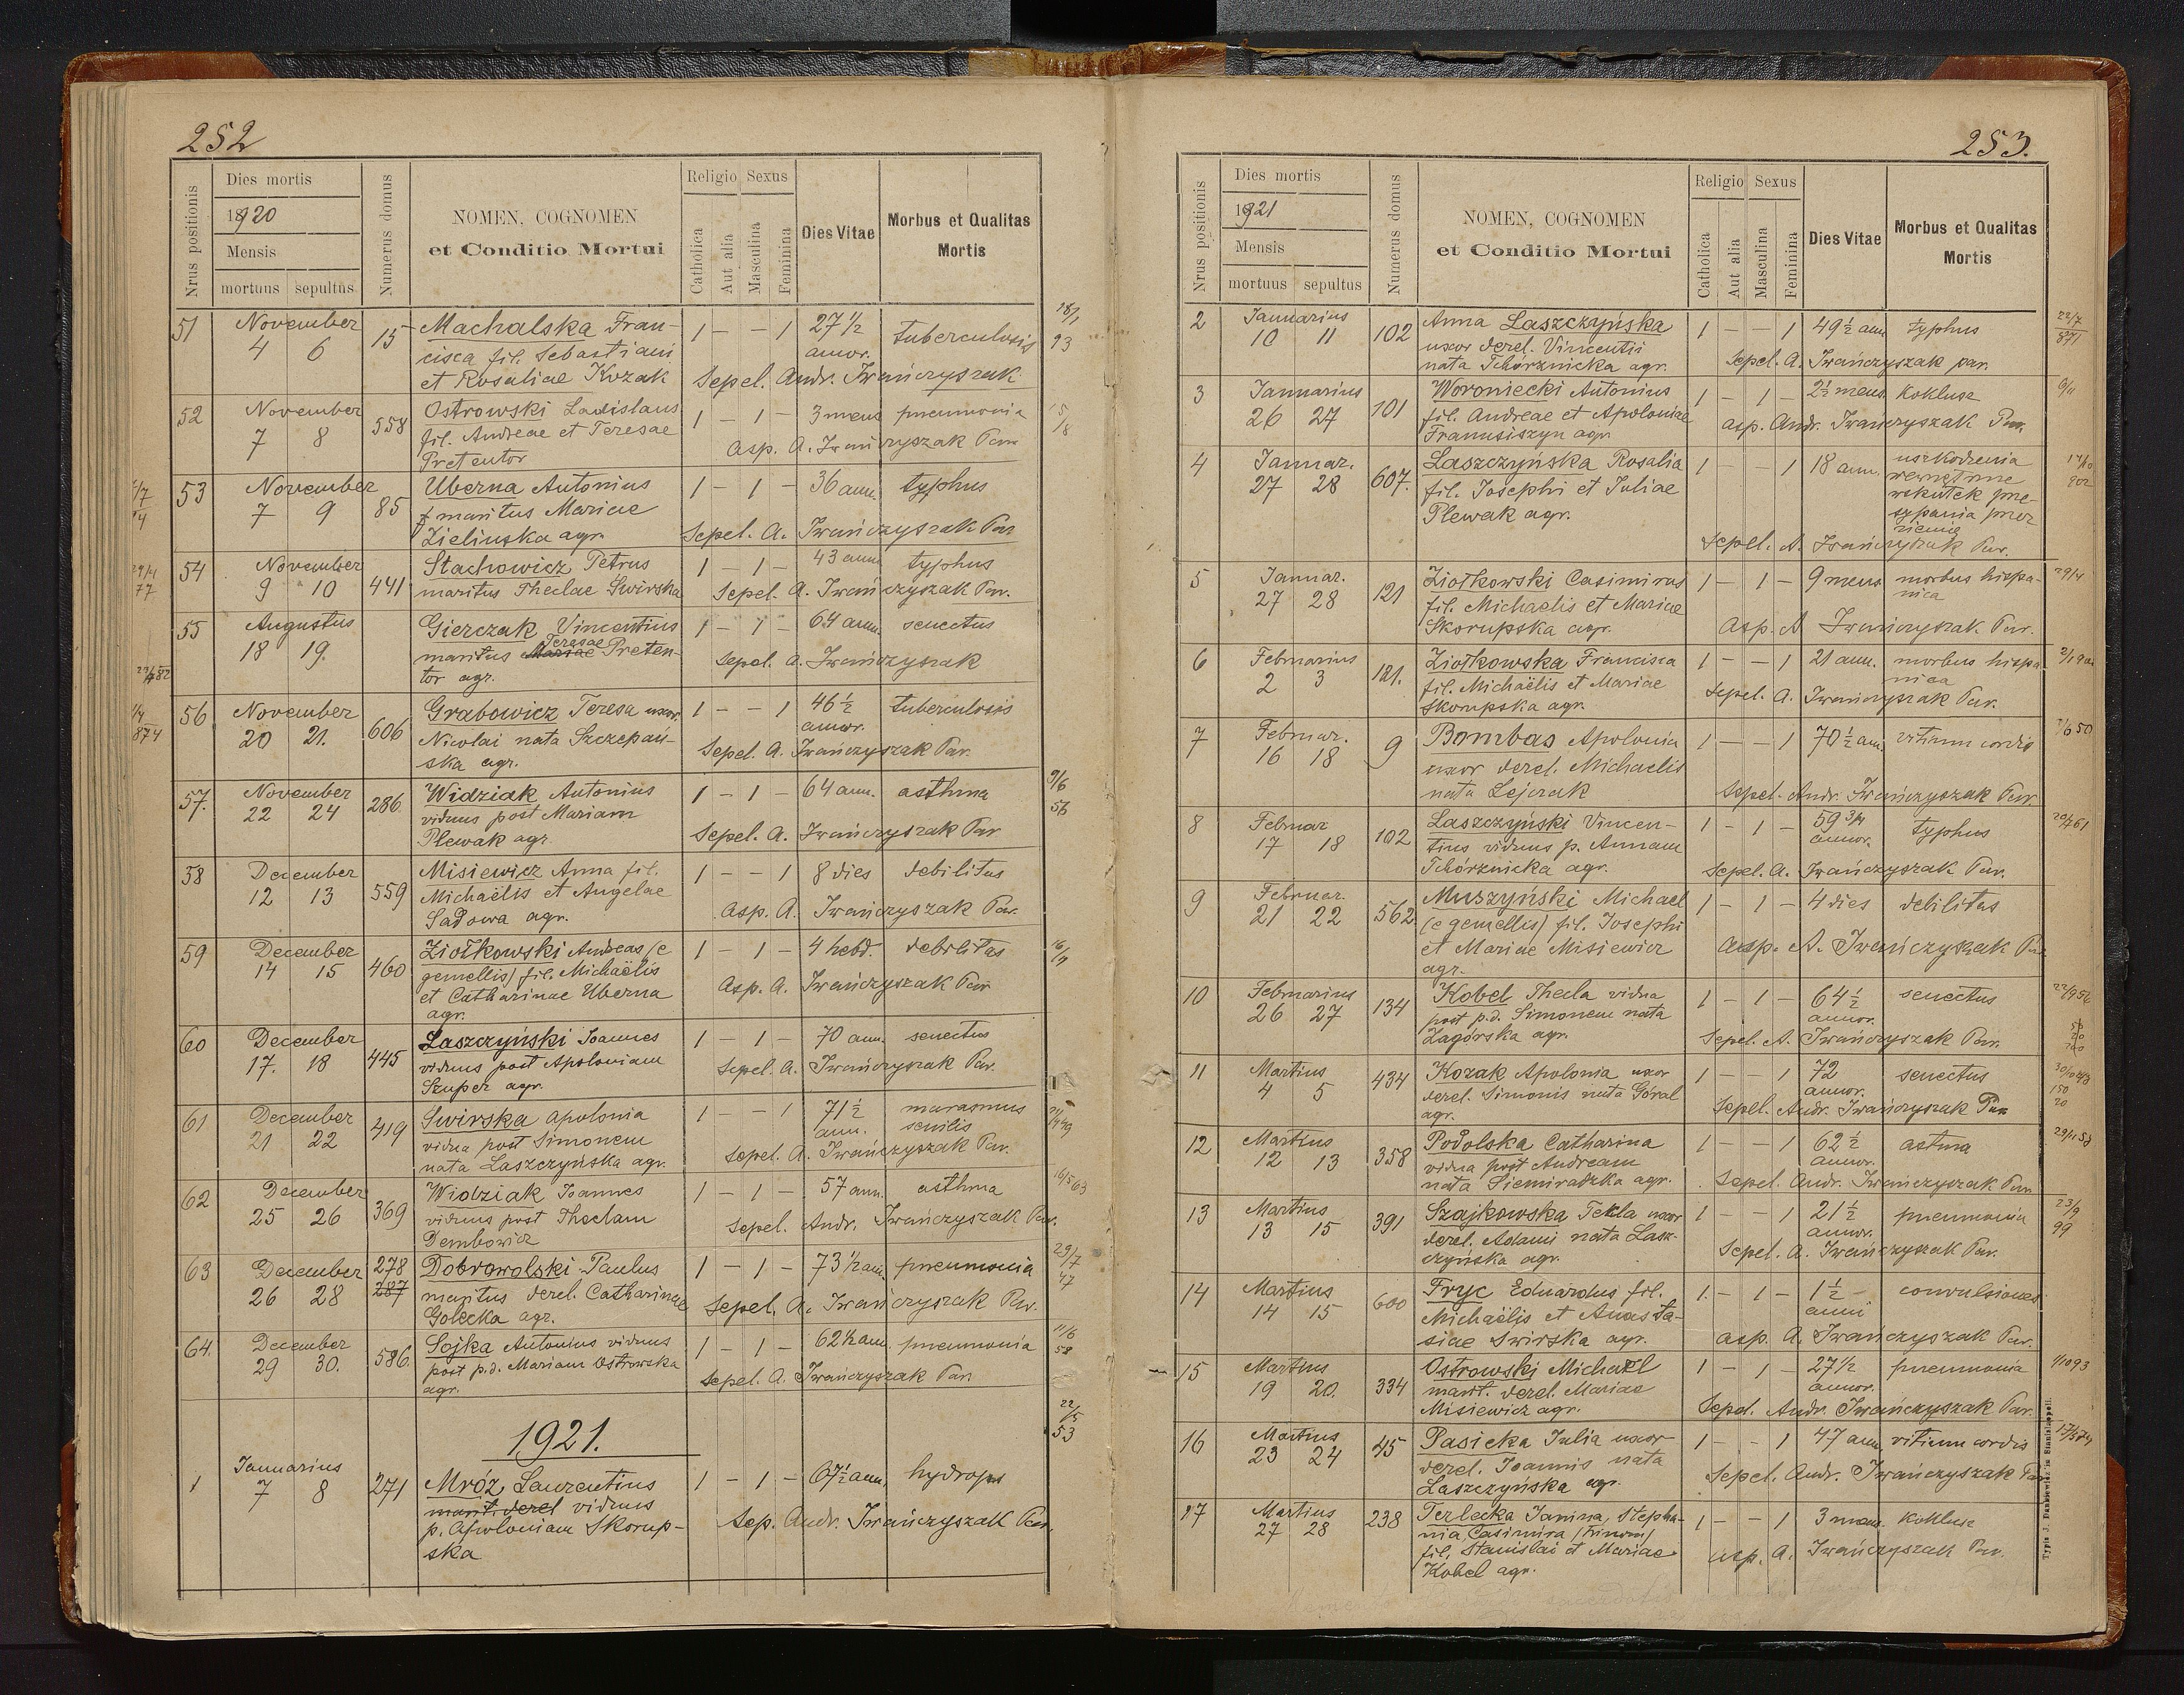 252
Nrus positionis
Dies mortis
1920
Mensis
mortuus sepultus
Numerus domus
NOMEN, COGNOMEN
et Conditio Mortui
Religio Sexus
Catholica
Aut alia
Masculina
Feminina
Dies Vitae
Morbus et Qualitas
Mortis
51 November 15 Machalska Fran- 1 – – 1 27 1/2 tuberculosis
4 6 cisca fil. Sebastiani annor.
et Rosaliae Kozak Sepel. Andr. Iwańczyszak
52 November 558 Ostrowski Ladislaus 1 – 1 – 3 mens pneumonia
7 8 fil. Andreae et Teresae Asp. A. Iwańczyszak Par
Pretentor
53 November 85 Uberna Antonius 1 – 1 – 36 ann. typhus
7 9 maritus Mariae
Zielinska agr. Sepel. A. Iwańczyszak Par
54 November 441 Stachowicz Petrus 1 – 1 – 43 ann typhus
9 10 maritus Theclae Swirska Sepel. A. Iwańczyszak Par.
55 Augustus Gierczak Vincentius 1 – 1 – 64 ann. senectus
18 19. maritus Mariae Teresae Preten- Sepel. A. Iwańczyszak
tor agr.
56 November 606 Grabowicz Teresa uxor. 1 – – 1 46 1/2 tuberculosis
20 21. Nicolai nata Szczepań- annor.
ska agr. Sepel. A. Iwańczyszak Par.
57. November 286 Widziak Antonius 1 – 1 – 64 ann. asthma
22 24 viduus post Mariam
Plewak agr. Sepel. A. Iwańczyszak Par
58 December 559 Misiewicz Anna fil. 1 – – 1 8 dies debilitas
12 13 Michaëlis et Angelae
Sadowa agr. Asp. A. Iwańczyszak Par.
59 December 460 Ziołkowski Andreas (e 1 – 1 – 4 hebd. debilitas
14 15 gemellis) fil. Michaëlis
et Catharinae Uberna Asp. A. Iwańczyszak Par
agr.
60 December 445 Laszczyński Joannes 1 – 1 – 70 ann. senectus
17. 18 viduus post Apoloniam Sepel. A. Iwańczyszak Par.
Szuper agr.
61 December 419 Swirska Apolonia 1 – – 1 71 1/2 marasmus
21 22 vidua post Simonem ann. senilis
nata Laszczyńska agr. Sepel. A. Iwańczyszak Par.
62 December 369 Widziak Joannes 1 – 1 – 57 ann. asthma
25 26 viduus post Theclam Sepel. Andr. Iwańczyszak Par.
Dembowicz
63 December 278 Dobrowolski Paulus 1 – 1 – 73 1/2 ann. pneumonia
26 28 287 maritus derel. Catharinae
Golecka agr. Sepel. A. Iwańczyszak Par.
64. December 586. Sojka Antonius viduus 1 – 1 – 62 1/2 ann. pneumonia
29 30. post p.d. Mariam Ostrowska
agr. Sepel. A. Iwańczyszak Par.
1921.
1 Januarius 271 Mróz Laurentius 1 – 1 – 67 1/2 ann. hydrops
7 8 marit. derel viduus
p. Apoloniam Skorup- Sep. Andr. Iwańczyszak Par.
ska
253.
Nrus positionis
Dies mortis
1921
Mensis
mortuus sepultus
Numerus domus
NOMEN, COGNOMEN
et Conditio Mortui
Religio Sexus
Catholica
Aut alia
Masculina
Feminina
Dies Vitae
Morbus et Qualitas
Mortis
2 Januarius 102 Anna Laszczyńska 1 – – 1 49 1/2 ann. typhus
10 11 uxor derel. Vincentii
nata Tchórznicka agr. Sepel. A. Iwańczyszak par.
3 Januarius 101 Woroniecki Antonius 1 – 1 – 2 1/2 mens. koklusz
26 27 fil. Andreae et Apoloniae Asp. Andr. Iwańczyszak Par.
Franusiszyn agr.
4 Januar. 607. Laszczyńska Rosalia 1 – – 1 18 ann. uszkodzenia
27 28 fil. Josephi et Juliae wewnętrzne
Plewak agr. wskutek prze-
sypania przez
ziemię
Sepel. A. Iwańczyszak Par.
5 Januar. 121 Ziołkowski Casimirus 1 – 1 – 9 mens morbus hispa-
27 28 fil. Michaelis et Mariae nica
Skorupska agr. Asp. A Iwańczyszak Par.
6 Februarius 121. Ziołkowska Francisca 1 – – 1 21 ann. morbus hispa
2 3 fil. Michaëlis et Mariae nica
Skorupska agr. Sepel. A. Iwańczyszak Par.
7 Februar. 9 Bombas Apolonia 1 – – 1 70 1/2 ann. vitium cordis
16 18 uxor derel. Michaelis
nata Lejczak Sepel. Andr. Iwańczyszak Par.
8 Februar 102 Laszczyński Vincen- 1 – 1 – 59 3/4 typhus
17 18 tius viduus p. Annam annor.
Tchórznicka agr. Sepel. A. Iwańczyszak Par.
9 Februar. 562. Muszyński Michael 1 – 1 – 4 dies debilitas
21 22 (e gemellis) fil. Josephi
et Mariae Misiewicz Asp. A. Iwańczyszak Par
agr.
10 Februarius 134 Kobel Thecla vidua 1 – 1 – 64 1/2 senectus
26 27 post p.d. Simonem nata annor.
Zagórska agr. Sepel. A. Iwańczyszak Par.
11 Martius 434 Kozak Apolonia uxor 1 – – 1 72 senectus
4 5 derel. Simonis nata Góral annor.
agr. Sepel. Andr. Iwańczyszak Par
12 Martius 358 Podolska Catharina 1 – – 1 62 1/2 astma
12 13 vidua post Andream annor.
nata Siemiradzka agr. Sepel. Andr. Iwańczyszak Par
13 Martius 391 Szajkowska Tekla uxor 1 – – 1 21 1/2 pneumonia
13 15 derel. Adami nata Lasz- annor.
czyńska agr. Sepel. A. Iwańczyszak Par.
14 Martius 600 Fryc Eduardus fil. 1 – 1 – 1 1/2 convulsiones
14 15 Michaëlis et Anasta- anni
siae Swirska agr. Asp. A. Iwańczyszak Par.
15 Martius 334 Ostrowski Michaël 1 – 1 – 27 1/2 pneumonia
19 20. marit. derel. Mariae annor.
Misiewicz agr. Sepel. Andr. Iwańczyszak Par.
16 Martius 45 Pasicka Julia uxor 1 – – 1 47 ann. vitium cordis
23 24 derel. Joannis nata
Laszczyńska agr. Sepel. Andr. Iwańczyszak Par
17 Martius 238 Terlecka Janina, Stepha- 1 – – 1 3 mens. Koklusz
27 28 nia Casimira (trinom)
fil. Stanislai et Mariae Asp. A. Iwańczyszak Par.
Kobel agr.
Typis J. Dankiewicza in Stanislaopoli.